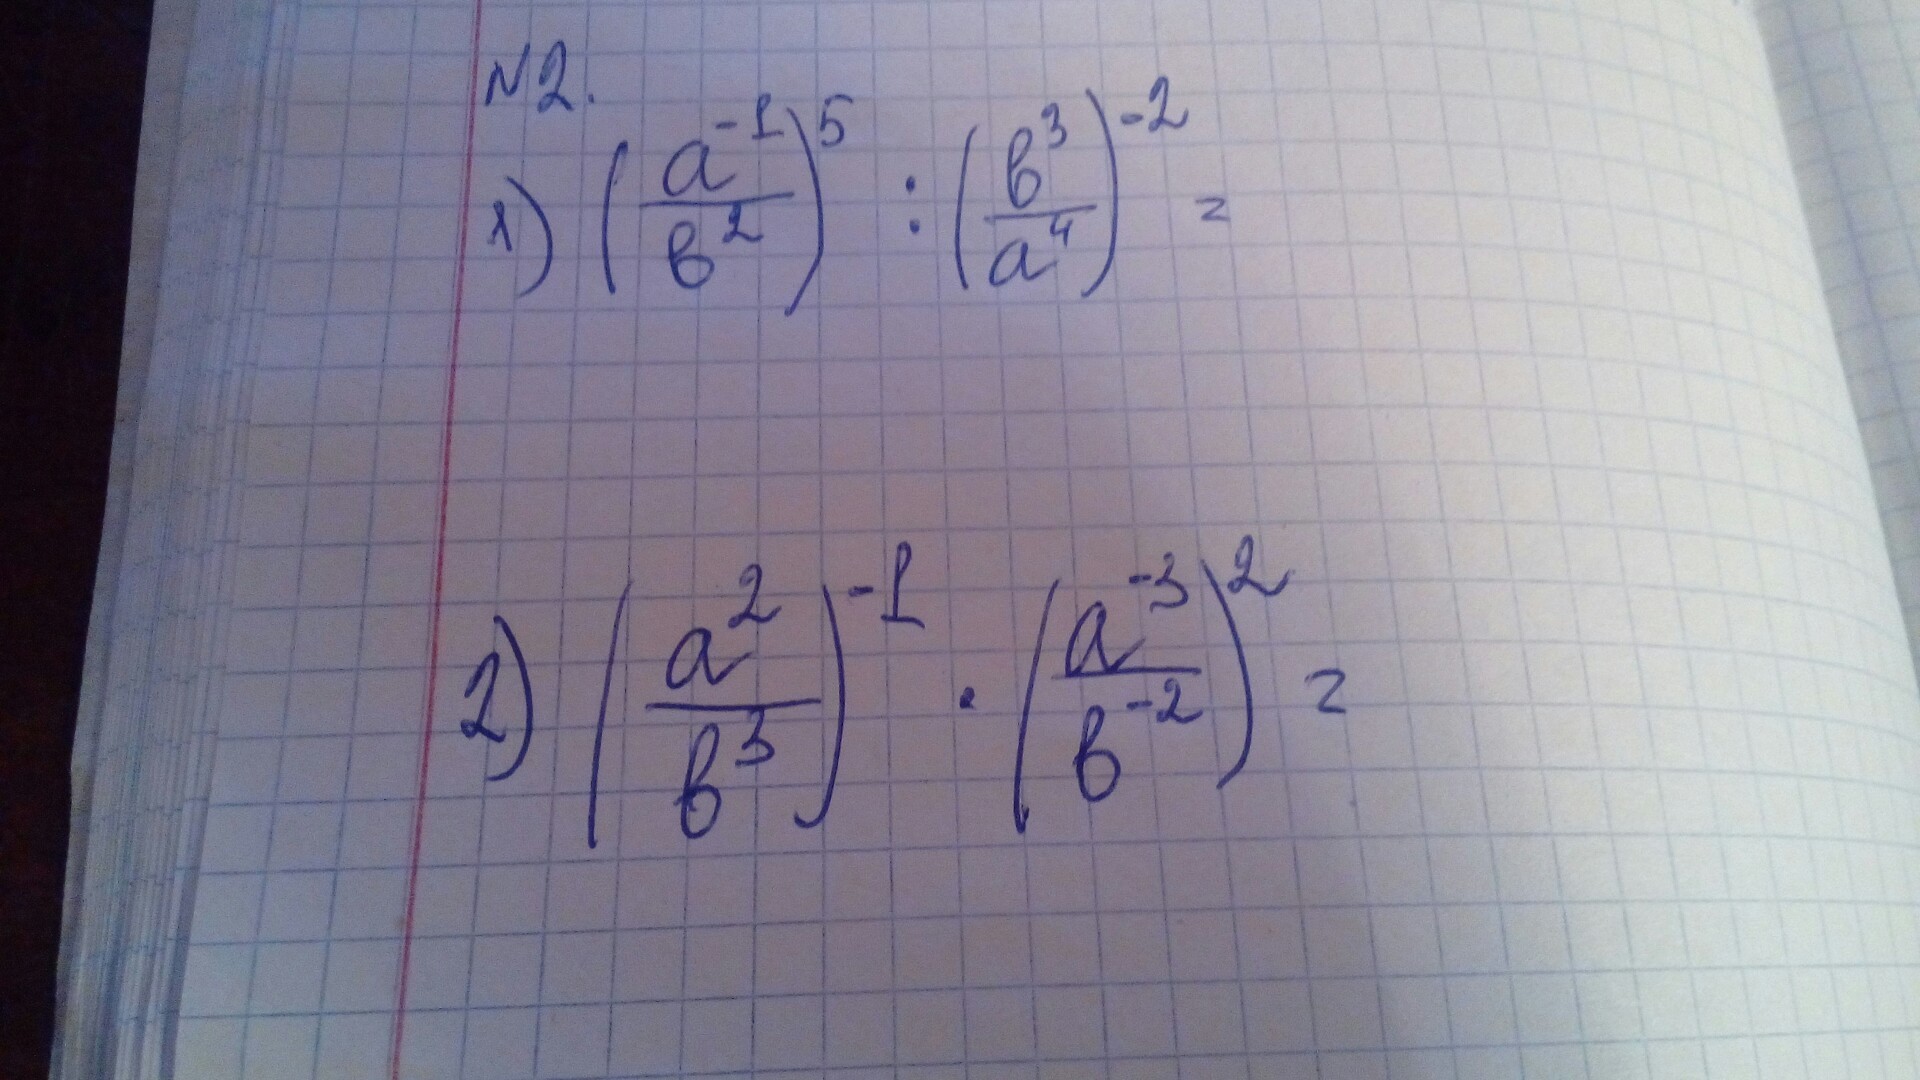 N2.
1) (a^-1/в^2)^5 : (в^3/a^4)^-2 =
2) (a^2/в^3)^-1 · (a^-3/в^-2)^2 =